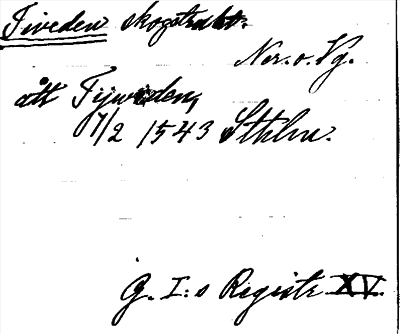 Tiveden skogstrakt.
Ner. o. Vg.
att Tijweden,
7/2 1543 Sthlm.
G. I:s Registr. XV.